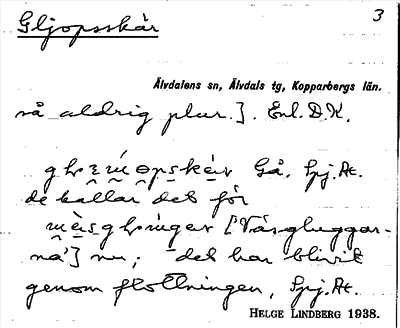 Gljopsskär
3
Älvdalens sn, Älvdals tg, Kopparbergs län.
så aldrig plur.]. Enl. D.K.
Gå. Spj. At.
de kallar det för
[Vårgluggar-
na'] nu; det har blivit
genom flottningen, Spj. At.
HELGE LINDBERG 1938.